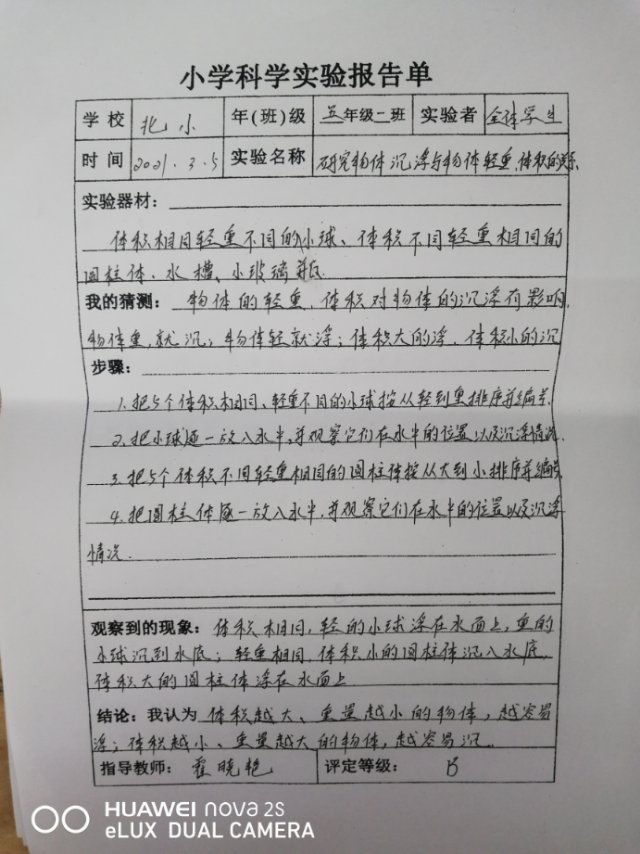 小学科学实验报告单
学校 北小 年(班)级 五年级二班 实验者 全体学生
时间 2021.3.5 实验名称 研究物体沉浮与物体轻重、体积的关系
实验器材:
体积相同轻重不同的小球、体积不同轻重相同的
圆柱体、水槽、小玻璃瓶
我的猜测: 物体的轻重、体积对物体的沉浮有影响,
物体重,就沉;物体轻就浮;体积大的浮,体积小的沉
步骤:
1.把5个体积相同、轻重不同的小球按从轻到重排序并编号.
2.把小球逐一放入水中,并观察它们在水中的位置以及沉浮情况.
3.把5个体积不同轻重相同的圆柱体按从大到小排序并编号
4.把圆柱体逐一放入水中,并观察它们在水中的位置以及沉浮
情况.
观察到的现象: 体积相同,轻的小球浮在水面上,重的
小球沉到水底;轻重相同,体积小的圆柱体沉入水底,
体积大的圆柱体浮在水面上
结论:我认为 体积越大、重量越小的物体,越容易
浮;体积越小、重量越大的物体,越容易沉.
指导教师: 霍晓艳 评定等级: B
HUAWEI nova 2S
eLUX DUAL CAMERA